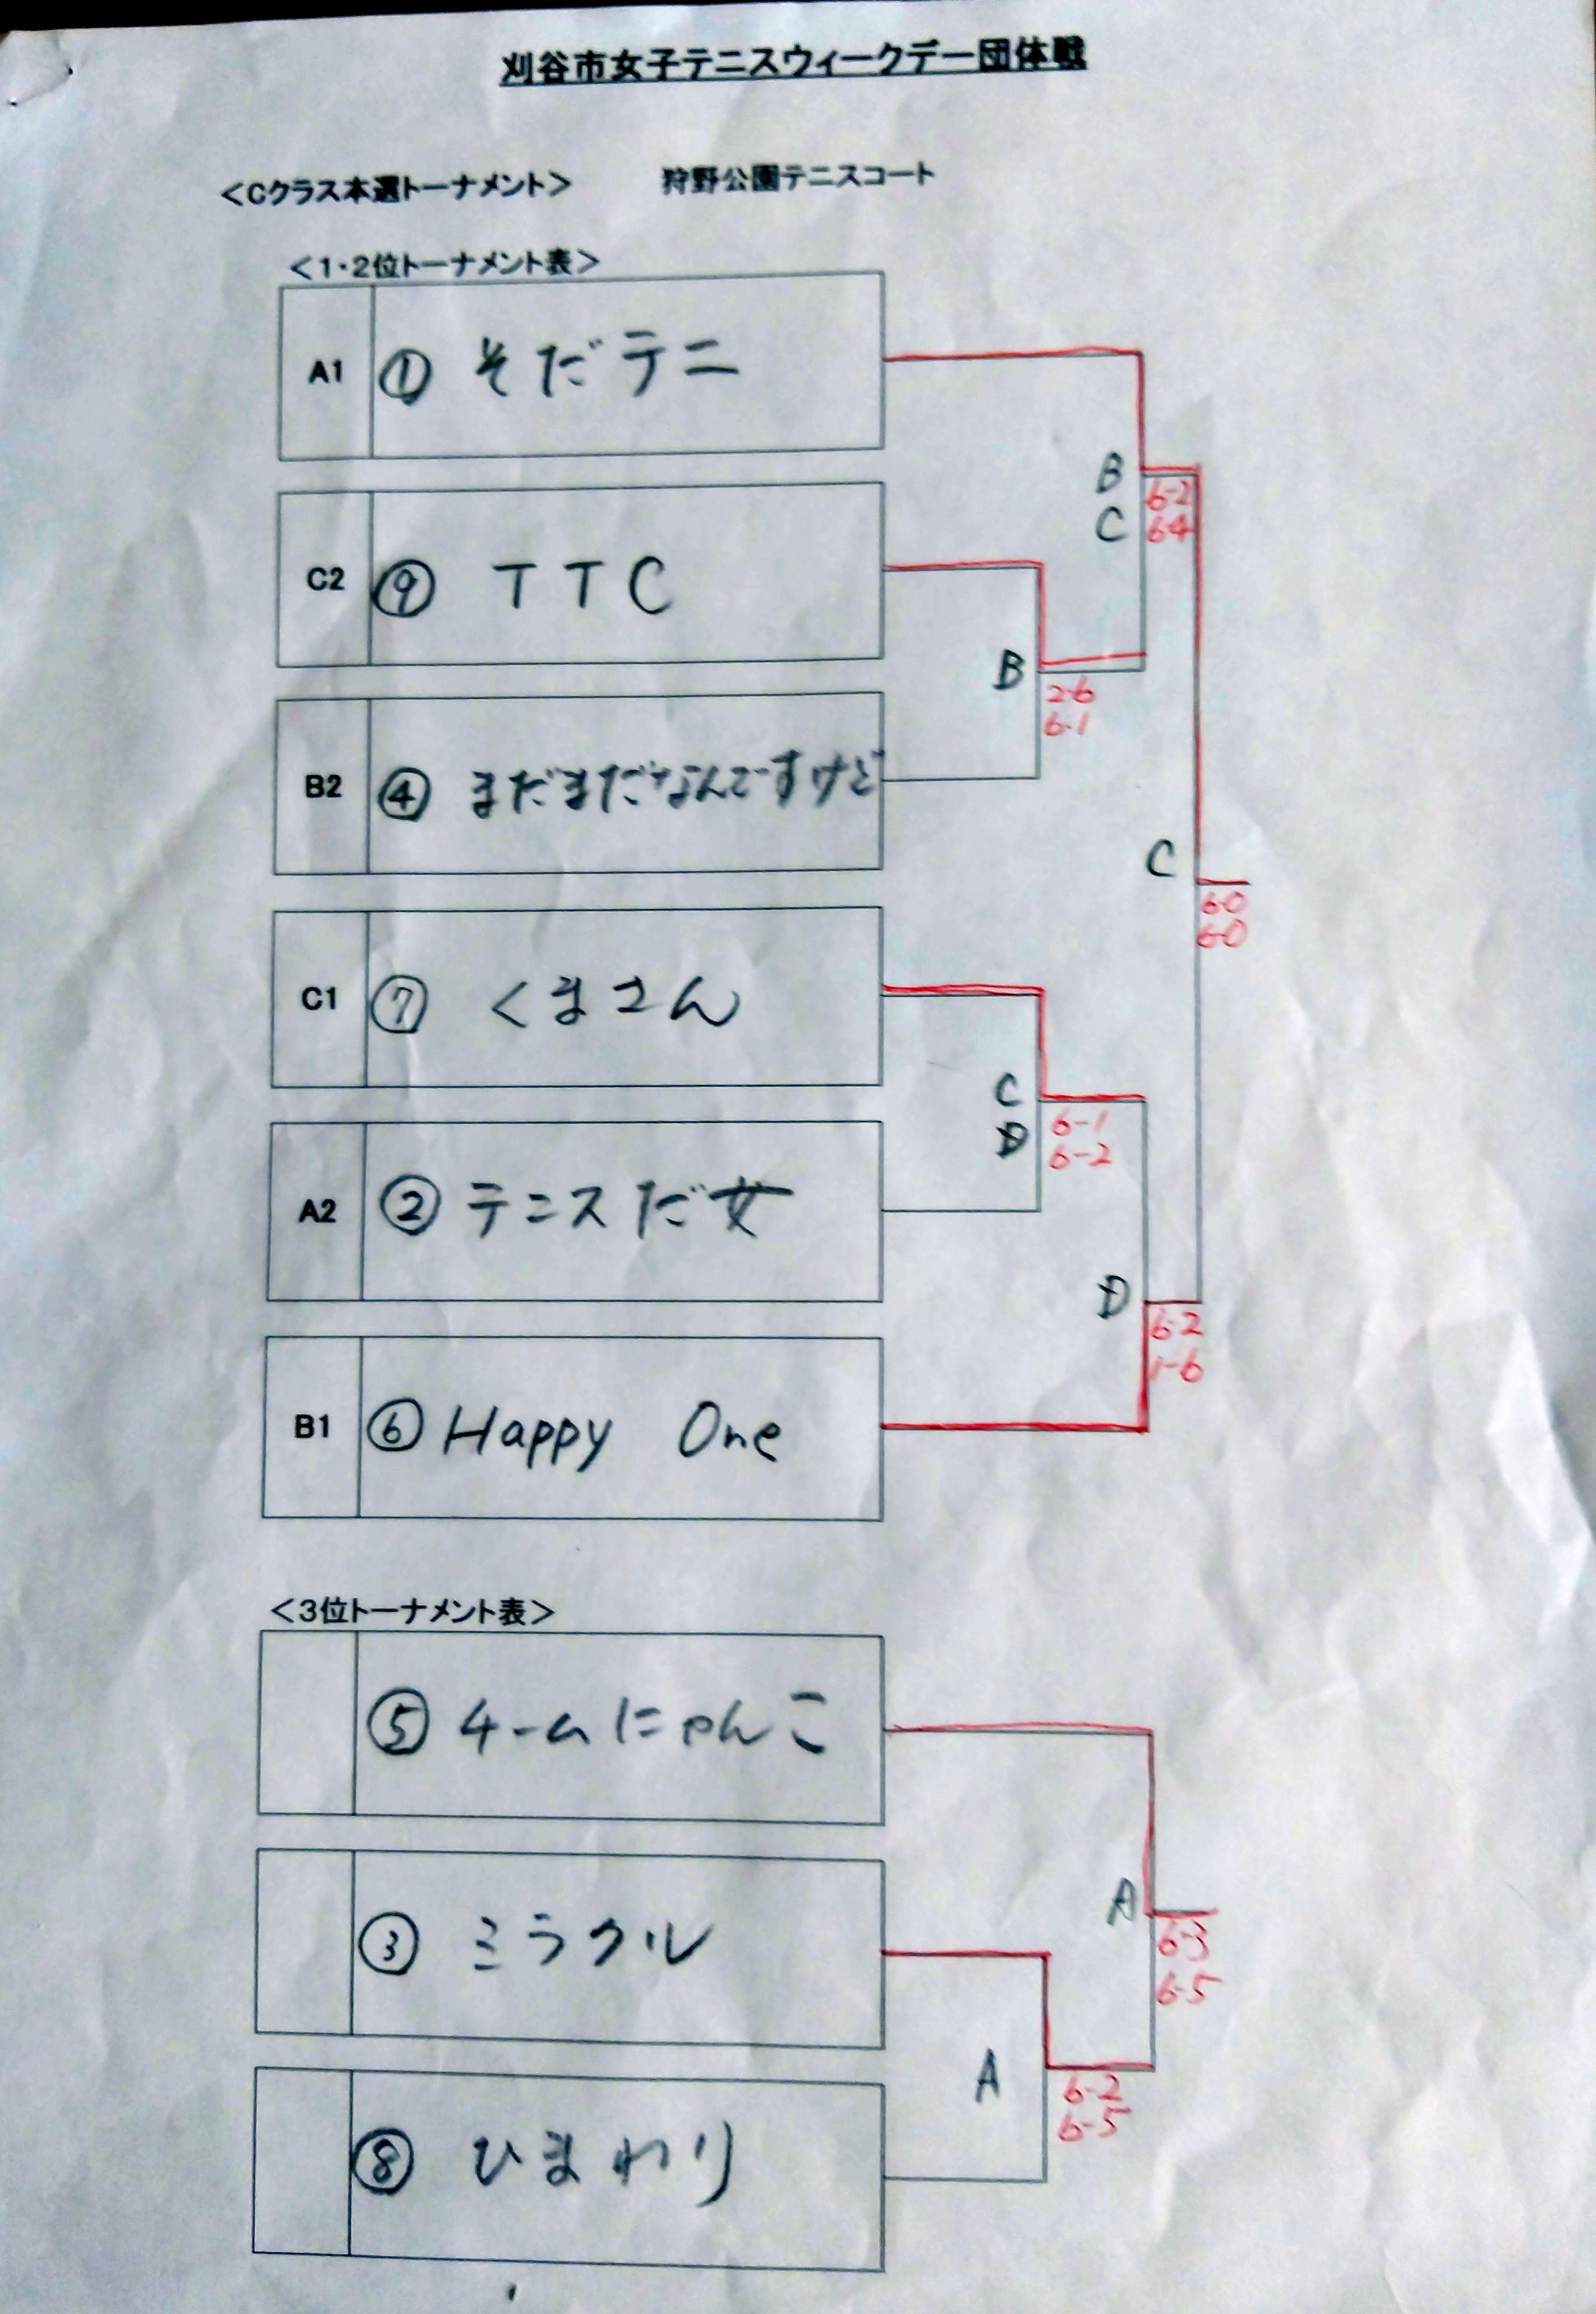 刈谷市女子テニスウィークデー団体戦
＜Cクラス本選トーナメント＞　狩野公園テニスコート
＜1・2位トーナメント表＞
A1 ① そだテニ
B
C
6-2
6-4
C2 ⑨ TTC
B
2-6
6-1
B2 ④ まだまだなんですけど
C
6-0
6-0
C1 ⑦ くまさん
C
D
6-1
6-2
A2 ② テニスだ女
D
6-2
1-6
B1 ⑥ Happy One
＜3位トーナメント表＞
⑤ チームにゃんこ
A
6-3
6-5
③ ミラクル
A
6-2
6-5
⑧ ひまわり